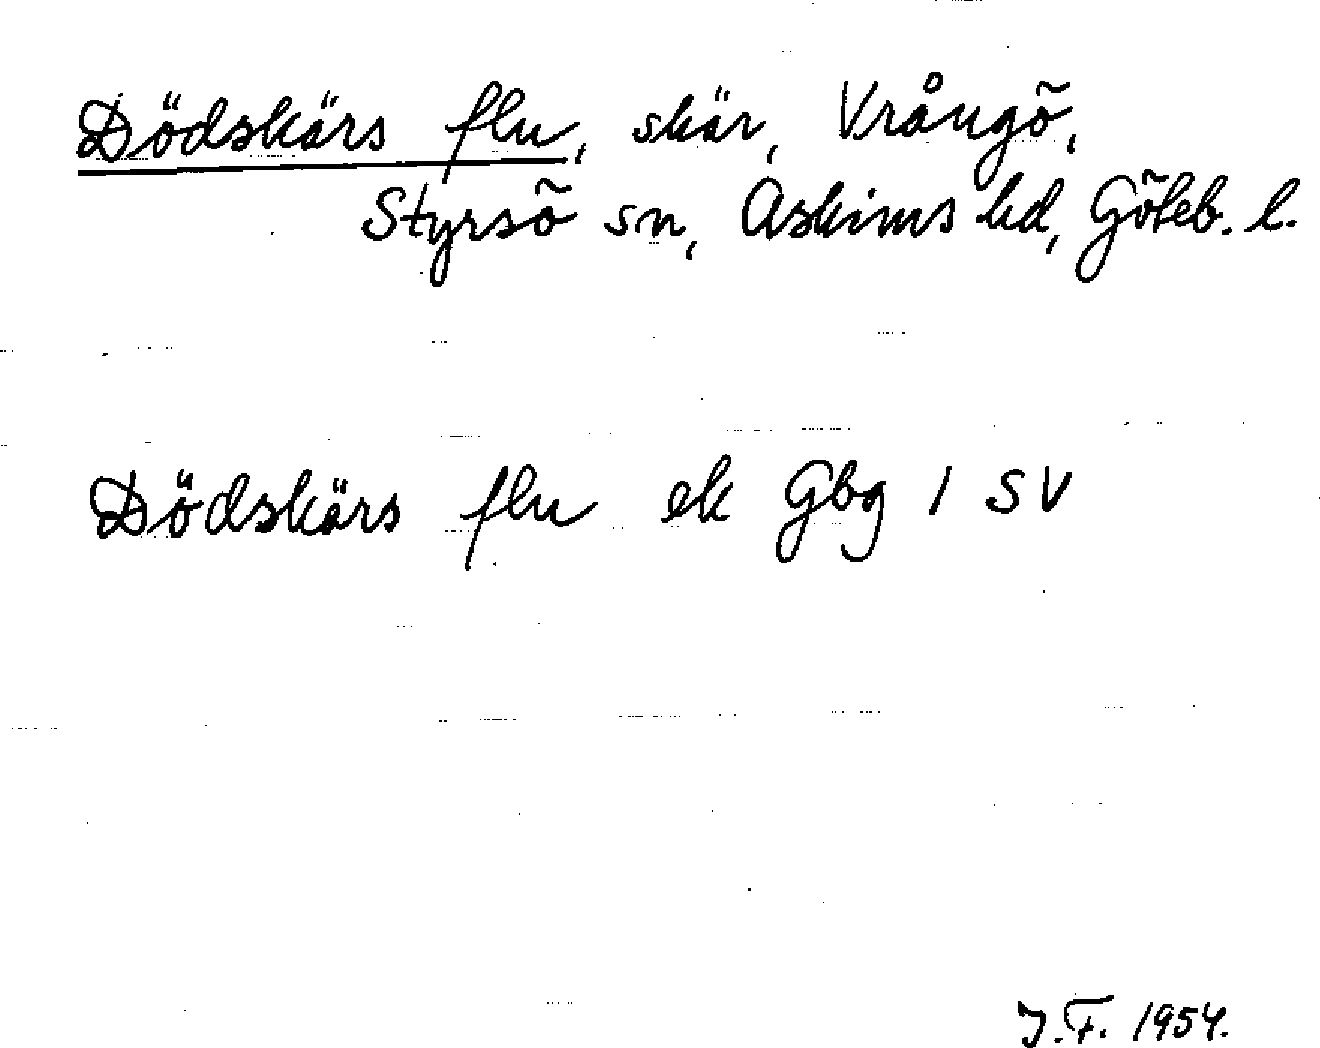 Dödskärs flu, skär, Vrångö,
Styrsö sn, Askims hd, Göteb. l.
Dödskärs flu ek Gbg 1 SV
J.F. 1954.